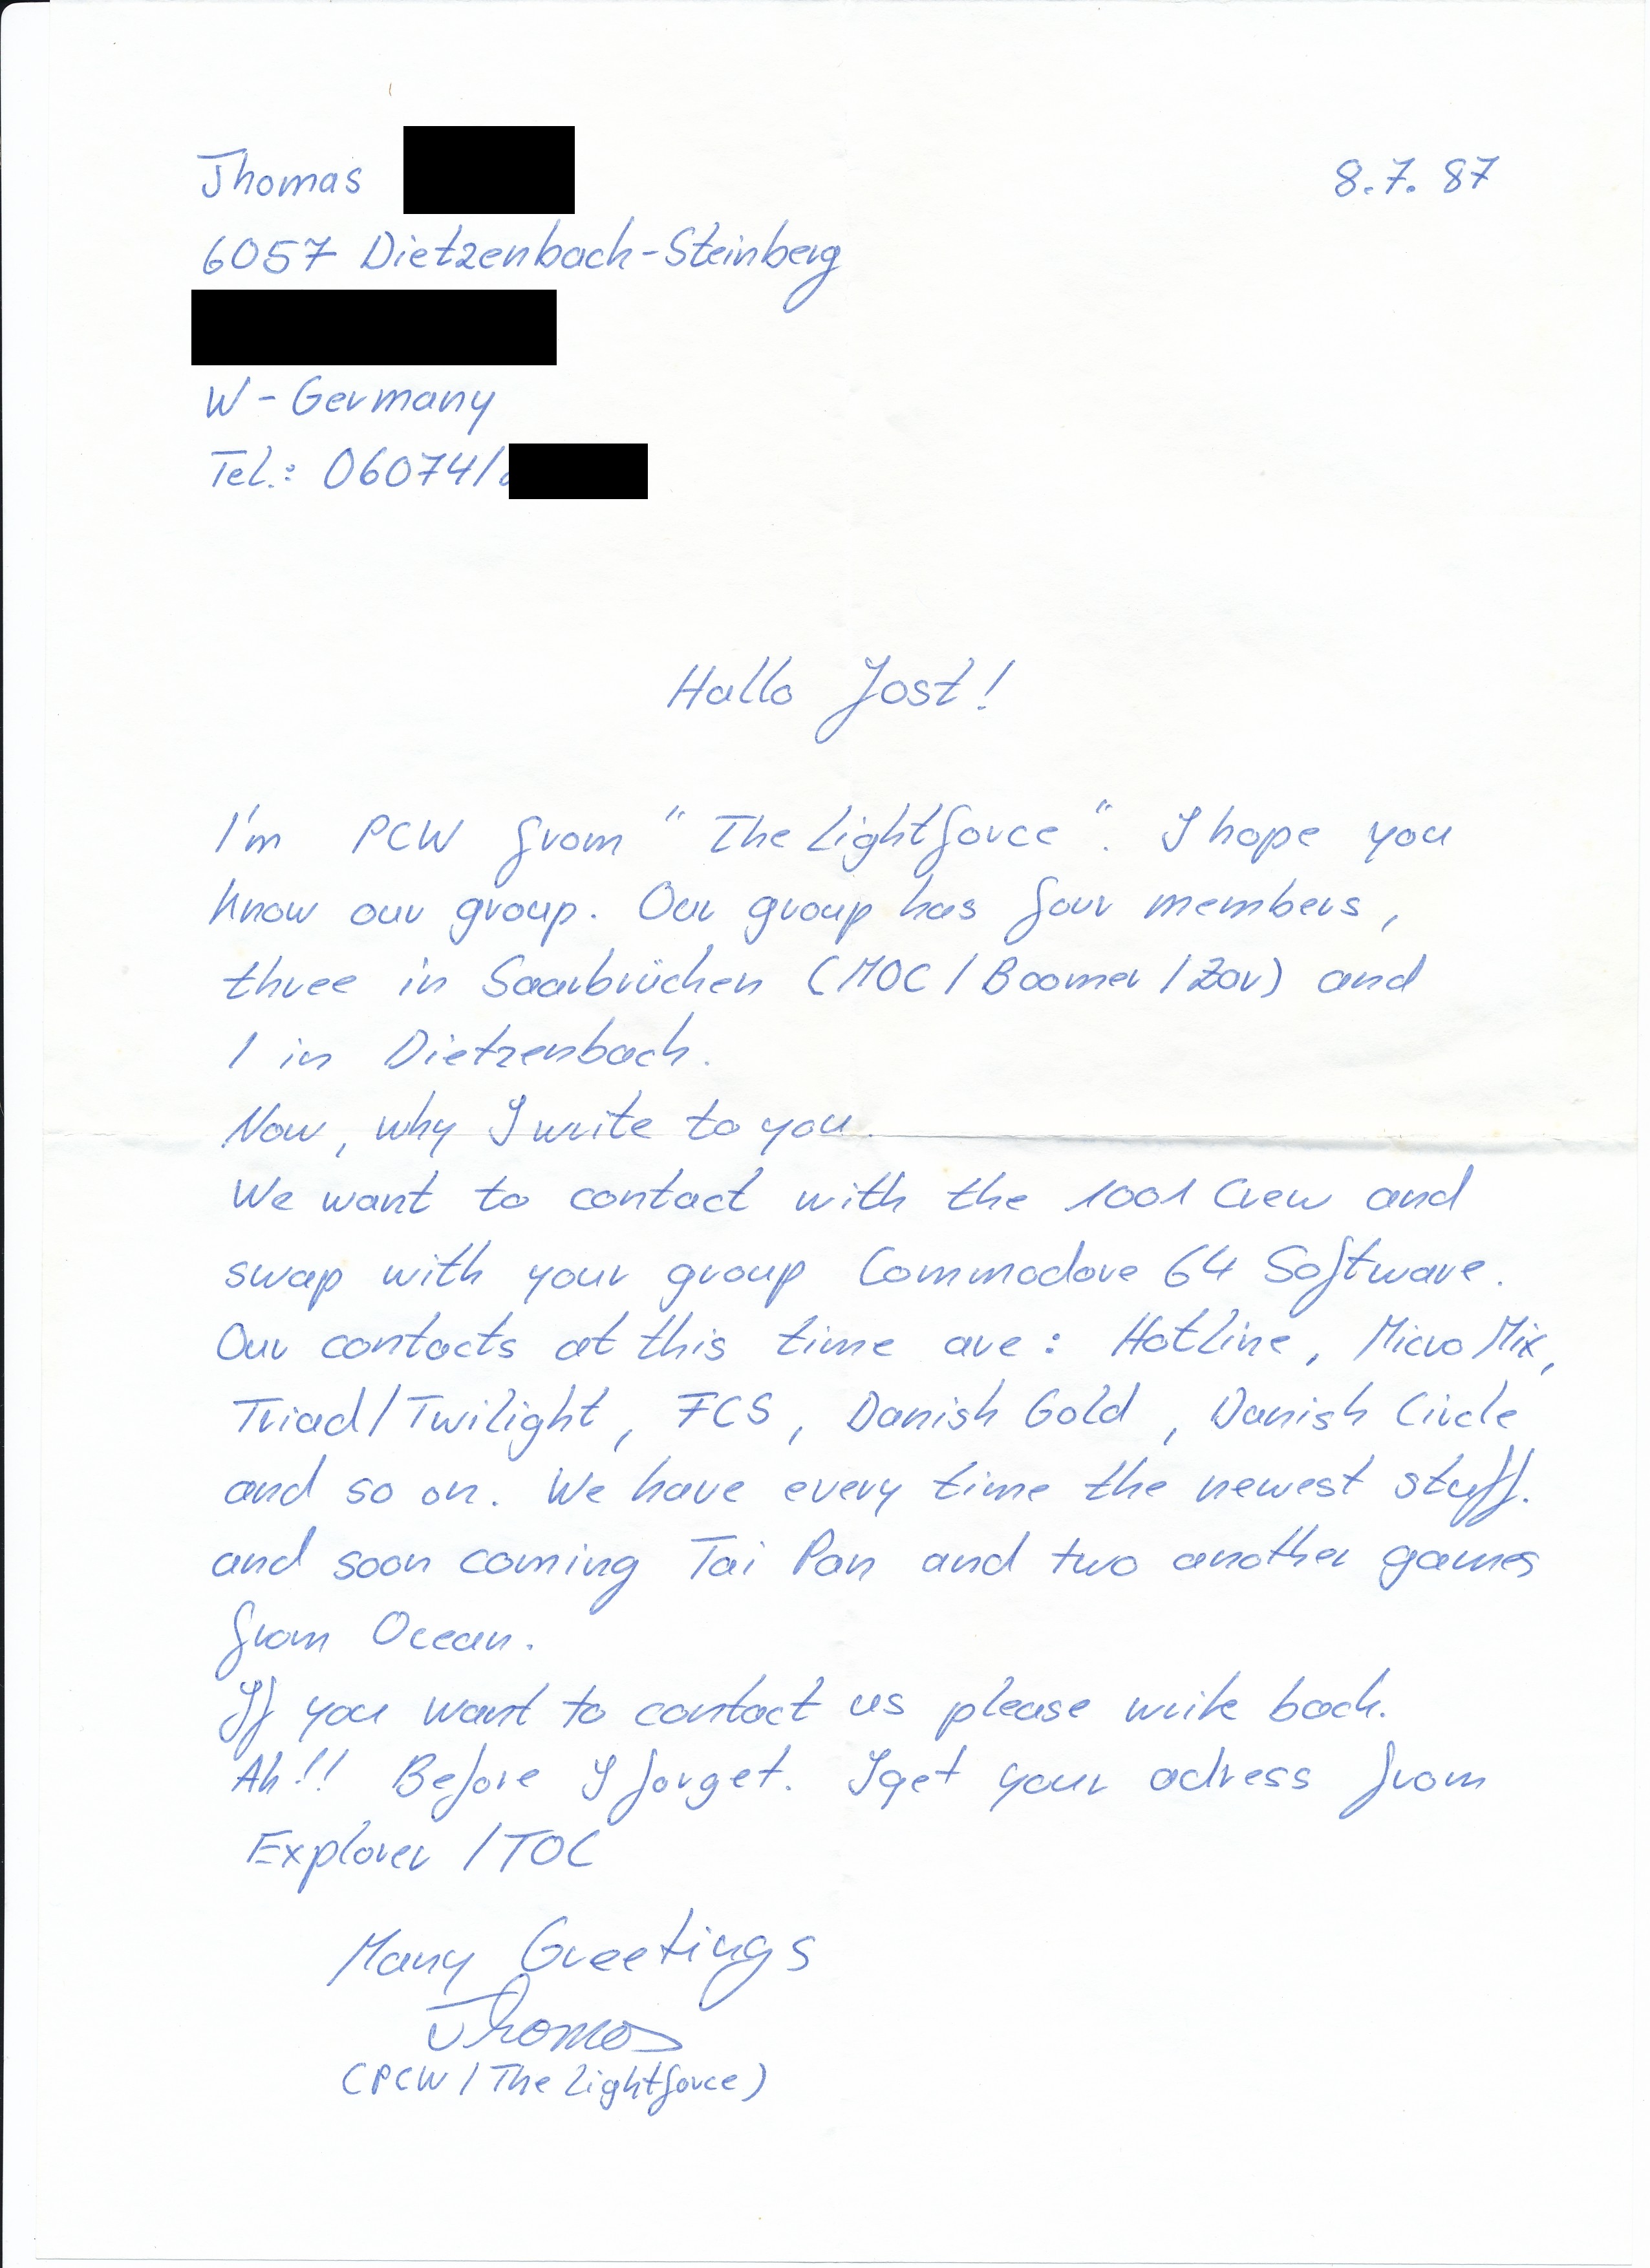 Thomas
8.7.87
6057 Dietzenbach-Steinberg
W-Germany
Tel.: 06074/
Hallo Jost!
I'm PCW from "The Lightforce". I hope you
know our group. Our group has four members,
three in Saarbrücken (MOC / Boomer / Zor) and
1 in Dietzenbach.
Now, why I write to you.
We want to contact with the 1001 Crew and
swap with your group Commodore 64 Software.
Our contacts at this time are: Hotline, Micro Mix,
Triad/Twilight, FCS, Danish Gold, Danish Circle
and so on. We have every time the newest stuff.
and soon coming Tai Pan and two another games
from Ocean.
If you want to contact us please write back.
Ah!! Before I forget. I get your adress from
Explorer /TOC
Many Greetings
Thomas
(PCW / The Lightforce)